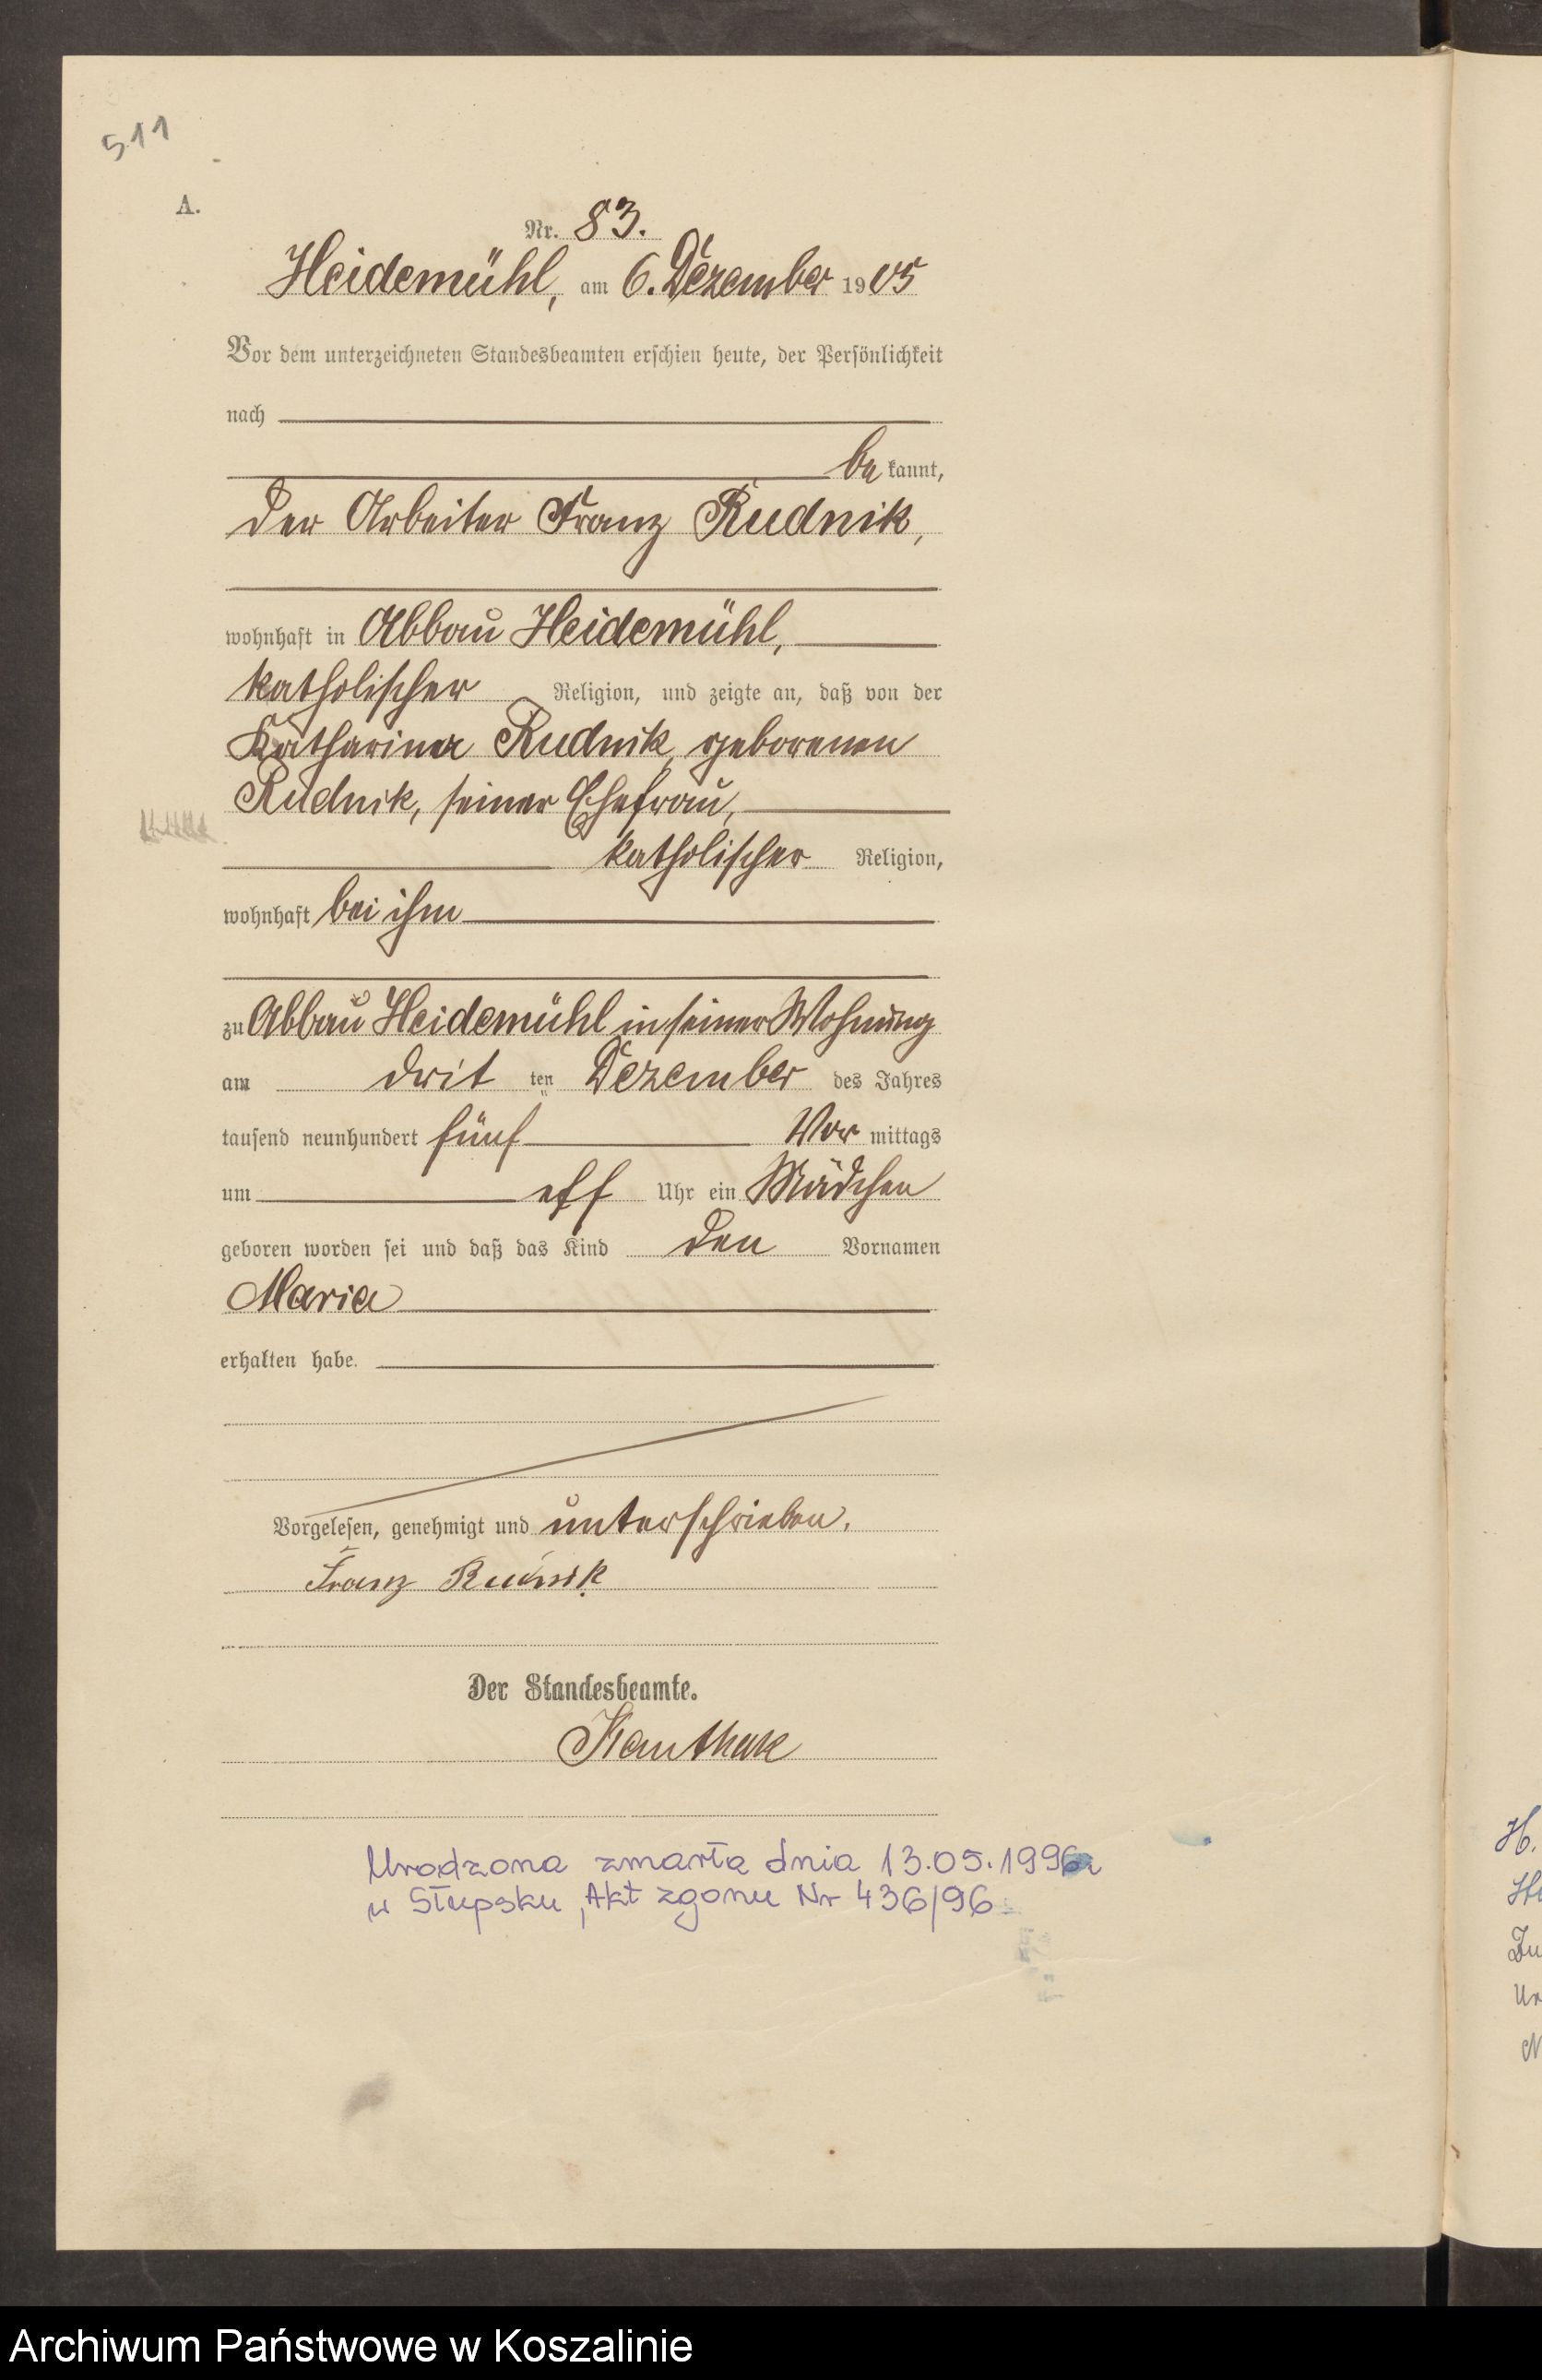 511
A.
Nr. 83.
Heidemühl, am 6. Dezember 1905
Vor dem unterzeichneten Standesbeamten erschien heute, der Persönlichkeit
nach
be kannt,
der Arbeiter Franz Rudnik,
wohnhaft in Abbau Heidemühl,
katholischer Religion, und zeigte an, daß von der
Katharina Rudnik, geborenen
Rudnik, seiner Ehefrau,
katholischer Religion,
wohnhaft bei ihm
zu Abbau Heidemühl in seiner Wohnung
am dritten Dezember des Jahres
tausend neunhundert fünf Vor mittags
um elf Uhr ein Mädchen
geboren worden sei und daß das Kind den Vornamen
Maria
erhalten habe.
Vorgelesen, genehmigt und unterschrieben.
Franz Rudnik
Der Standesbeamte.
Kanthak
Urodzona zmarła dnia 13.05.1996r
w Słupsku, Akt zgonu Nr 436/96
H.
Archiwum Państwowe w Koszalinie